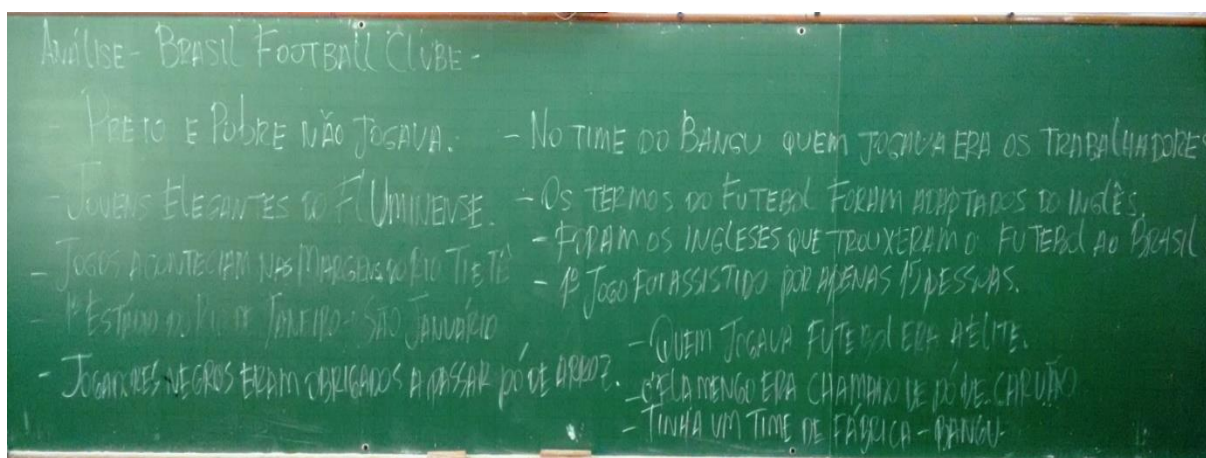 ANÁLISE - BRASIL FOOTBALL CLUBE -
PRETO E POBRE NÃO JOGAVA.
- JOVENS ELEGANTES DO FLUMINENSE.
- JOGOS ACONTECIAM NAS MARGENS DO RIO TIETÊ
- 1º ESTÁDIO DO RIO DE JANEIRO - SÃO JANUÁRIO
- JOGADORES NEGROS ERAM OBRIGADOS A PASSAR PÓ DE ARROZ.
- NO TIME DO BANGU QUEM JOGAVA ERA OS TRABALHADORES
- OS TERMOS DO FUTEBOL FORAM ADAPTADOS DO INGLÊS.
- FORAM OS INGLESES QUE TROUXERAM O FUTEBOL AO BRASIL
- 1º JOGO FOI ASSISTIDO POR APENAS 15 PESSOAS.
- QUEM JOGAVA FUTEBOL ERA A ÉLITE.
- O FLAMENGO ERA CHAMADO DE PÓ DE CARVÃO
- TINHA UM TIME DE FÁBRICA - BANGU -